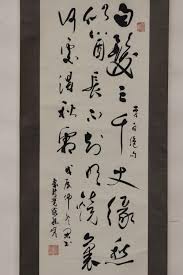 白髮三千丈緣愁
似箇長不知明鏡裏
何處得秋霜
李白絕句
戊辰仲冬